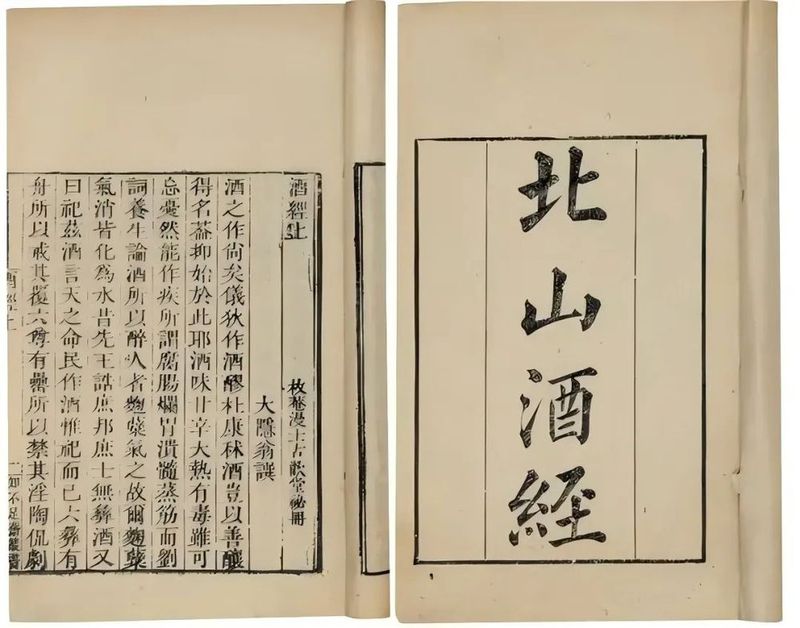 北山酒經
酒經上
枚菴漫士古歡堂祕冊
大隱翁譔
酒之作尚矣儀狄作酒醪杜康秫酒豈以善釀
得名葢抑始於此耶酒味甘辛大熱有毒雖可
忘憂然能作疾所謂腐腸爛胃潰髓蒸筋而劉
詞養生論酒所以醉人者麴蘗氣之故爾麴蘗
氣消皆化爲水昔先王誥庶邦庶士無彝酒又
曰祀茲酒言天之命民作酒惟祀而已六彝有
舟所以戒其覆六尊有罍所以禁其淫陶侃劇